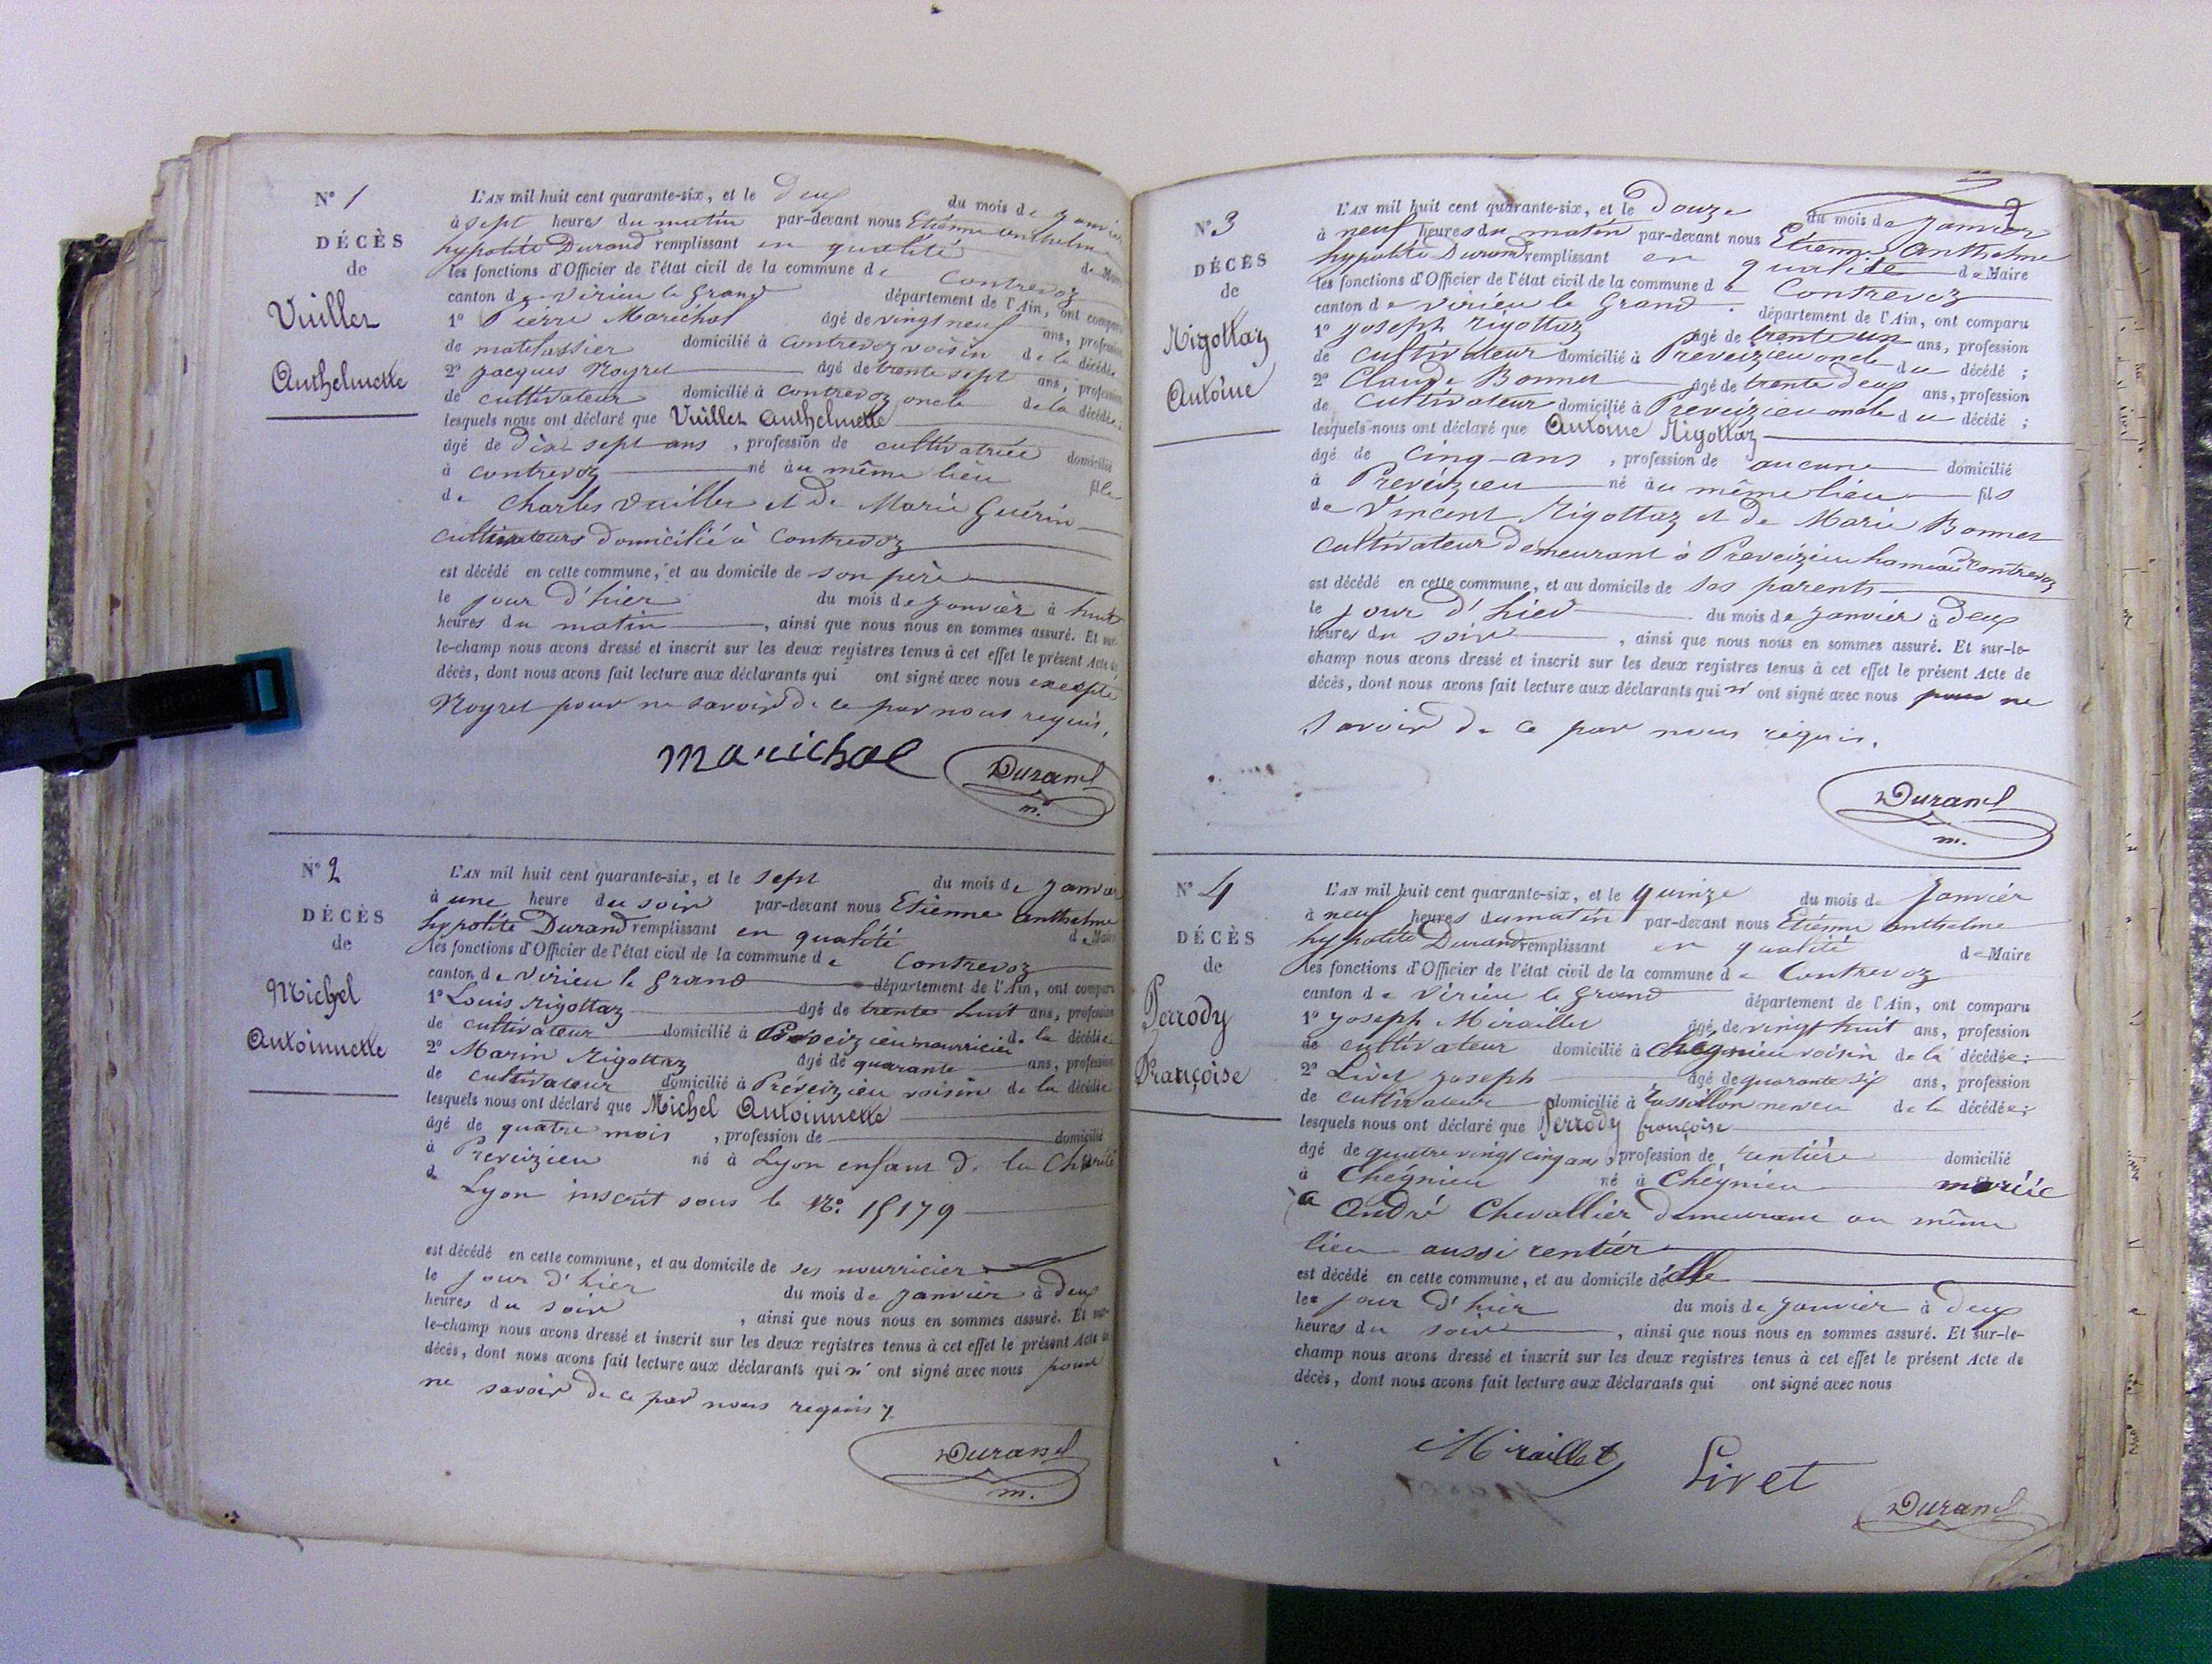 N° 1
DÉCÈS
de
Vuillez
Anthelmette
L'AN mil huit cent quarante-six, et le Deux du mois de janvier
à sept heures du matin par-devant nous Etienne anthelme
hypolite Durand remplissant en qualité de Maire
les fonctions d'Officier de l'état civil de la commune de Contrevoz
canton de virieu le grand département de l'Ain, ont comparu
1° Pierre Maréchal âgé de vingt neuf ans, profession
de matelassier domicilié à Contrevoz voisin de la décédée
2° Jacques Noyret âgé de trente sept ans, profession
de cultivateur domicilié à contrevoz oncle de la décédée
lesquels nous ont déclaré que Vuillez Anthelmette
âgé de dix sept ans, profession de cultivatrice domicilié
à contrevoz né au même lieu fille
de Charles Vuillez et de Marie Guérin
cultivateurs domicilié à Contrevoz
est décédé en cette commune, et au domicile de son père
le jour d'hier du mois de janvier à huit
heures du matin, ainsi que nous nous en sommes assuré. Et sur-
le-champ nous avons dressé et inscrit sur les deux registres tenus à cet effet le présent Acte de
décès, dont nous avons fait lecture aux déclarants qui ont signé avec nous excepté
Noyret pour ne savoir de ce par nous requis.
marichal Durand
m.
N° 2
DÉCÈS
de
Michel
Antoinnette
L'AN mil huit cent quarante-six, et le sept du mois de janvier
à une heure du soir par-devant nous Etienne anthelme
hypolite Durand remplissant en qualité de Maire
les fonctions d'Officier de l'état civil de la commune de Contrevoz
canton de virieu le grand département de l'Ain, ont comparu
1° Louis Rigottaz âgé de trente huit ans, profession
de cultivateur domicilié à Preveizieu nourricier de la décédée
2° Marin Rigottaz âgé de quarante ans, profession
de cultivateur domicilié à Preveizieu voisin de la décédée
lesquels nous ont déclaré que Michel Antoinnette
âgé de quatre mois, profession de domicilié
à Preveizieu né à Lyon enfant de la Charité
de Lyon inscrit sous le N°. 15179
est décédé en cette commune, et au domicile de ses nourricier
le jour d'hier du mois de janvier à deux
heures du soir, ainsi que nous nous en sommes assuré. Et sur-
le-champ nous avons dressé et inscrit sur les deux registres tenus à cet effet le présent Acte de
décès, dont nous avons fait lecture aux déclarants qui n' ont signé avec nous pour
ne savoir de ce par nous requis
Durand
m.
N° 3
DÉCÈS
de
Rigottaz
Antoine
L'AN mil huit cent quarante-six, et le Douze du mois de janvier
à neuf heures du matin par-devant nous Etienne Anthelme
hypolite Durand remplissant en qualité de Maire
les fonctions d'Officier de l'état civil de la commune de Contrevoz
canton de virieu le grand département de l'Ain, ont comparu
1° Joseph Rigottaz âgé de trente un ans, profession
de cultivateur domicilié à Preveizieu oncle du décédé ;
2° Claude Bonnet âgé de trente deux ans, profession
de Cultivateur domicilié à Preveizieu oncle du décédé ;
lesquels nous ont déclaré que Antoine Rigottaz
âgé de Cinq ans, profession de aucune domicilié
à Preveizieu né au même lieu fils
de Vincent Rigottaz et de Marie Bonnet
cultivateur demeurant à Preveizieu hameau de Contrevoz
est décédé en cette commune, et au domicile de ses parents
le jour d'hier du mois de janvier à deux
heures du soir, ainsi que nous nous en sommes assuré. Et sur-le-
champ nous avons dressé et inscrit sur les deux registres tenus à cet effet le présent Acte de
décès, dont nous avons fait lecture aux déclarants qui n' ont signé avec nous pour ne
savoir de ce par nous requis.
Durand
m.
N° 4
DÉCÈS
de
Perrody
Françoise
L'AN mil huit cent quarante-six, et le quinze du mois de Janvier
à neuf heures du matin par-devant nous Etienne anthelme
hypolite Durand remplissant en qualité de Maire
les fonctions d'Officier de l'état civil de la commune de Contrevoz
canton de Virieu le grand département de l'Ain, ont comparu
1° Joseph Miraillet âgé de vingt huit ans, profession
de cultivateur domicilié à Chegnieu voisin de la décédée ;
2° Livet Joseph âgé de quarante six ans, profession
de cultivateur domicilié à Rossillon neveu de la décédée ;
lesquels nous ont déclaré que Perrody françoise
âgé de quatre vingt cinq ans, profession de rentière domicilié
à Chégnieu né à Chégnieu mariée
a André Chevallier demeurant au même
lieu aussi rentier
est décédé en cette commune, et au domicile d'elle
le jour d'hier du mois de janvier à deux
heures du soir, ainsi que nous nous en sommes assuré. Et sur-le-
champ nous avons dressé et inscrit sur les deux registres tenus à cet effet le présent Acte de
décès, dont nous avons fait lecture aux déclarants qui ont signé avec nous
Miraillet Livet
Durand